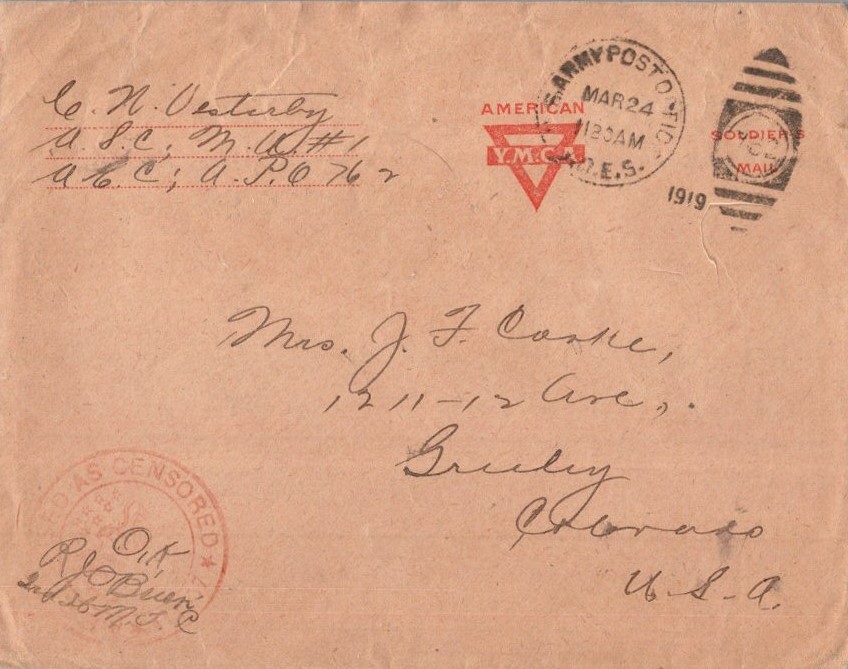 C. N. Vesterby
A.S.C; M.U #1
A.E.C; A.P.O 762
AMERICAN
Y.M.C.A.
U.S. ARMY POST OFFICE
MAR 24
11 20 AM
M.P.E.S.
1919
SOLDIER'S
MAIL
Mrs. J. F. Cooke,
1211-12 Ave,.
Greeley
Colorado
U.S.A.
AS CENSORED
O.K
R J O'Brien
2nd Lt M.T.C